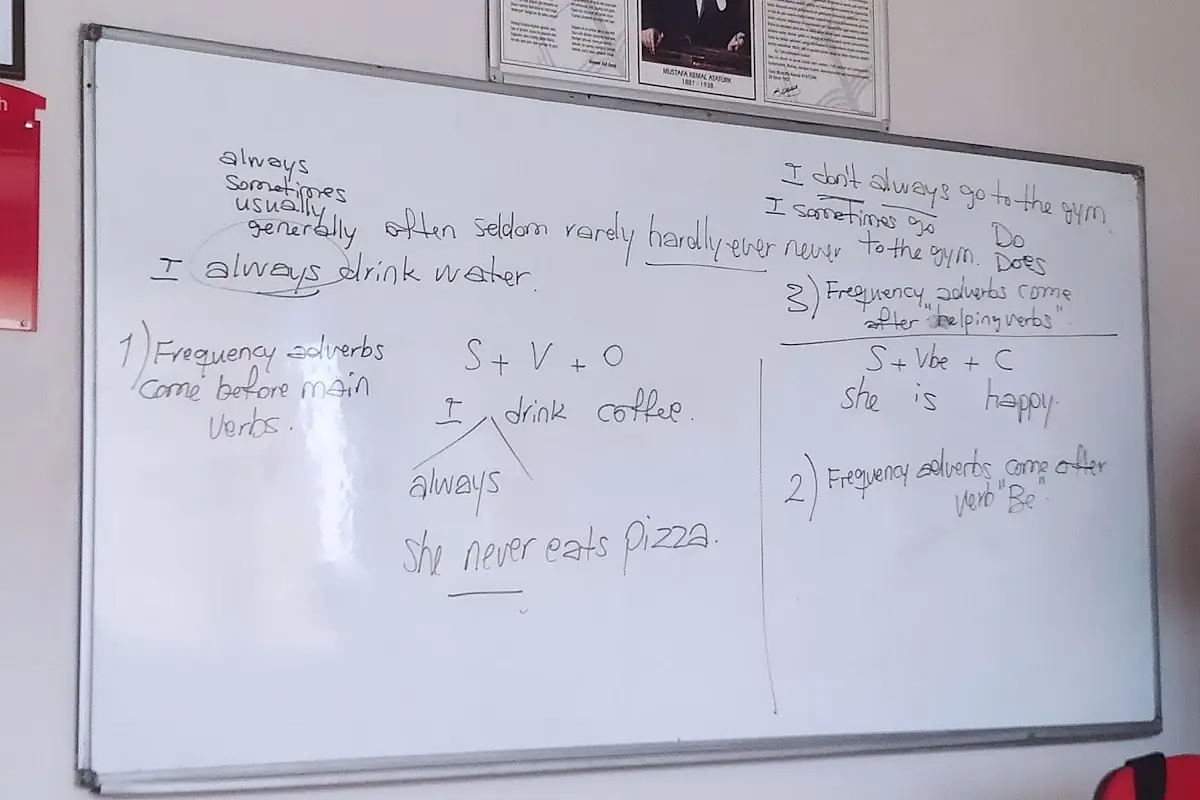 MUSTAFA KEMAL ATATÜRK
1881 - 1938
h
always
sometimes
usually
generally often seldom rarely hardly ever never
I always drink water.
I don't always go to the gym.
I sometimes go
to the gym.
Do
Does
3) Frequency adverbs come
after "helping verbs".
1) Frequency adverbs
come before main
verbs.
S + V + O
I drink coffee.
always
she never eats pizza.
S + Vbe + C
she is happy.
2) Frequency adverbs come after
verb "Be".